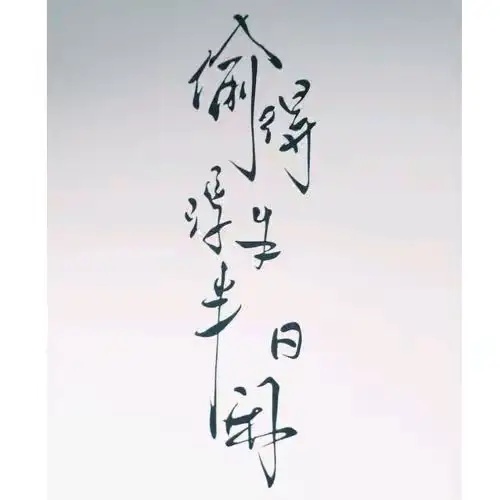 偷得
浮生
半日
闲